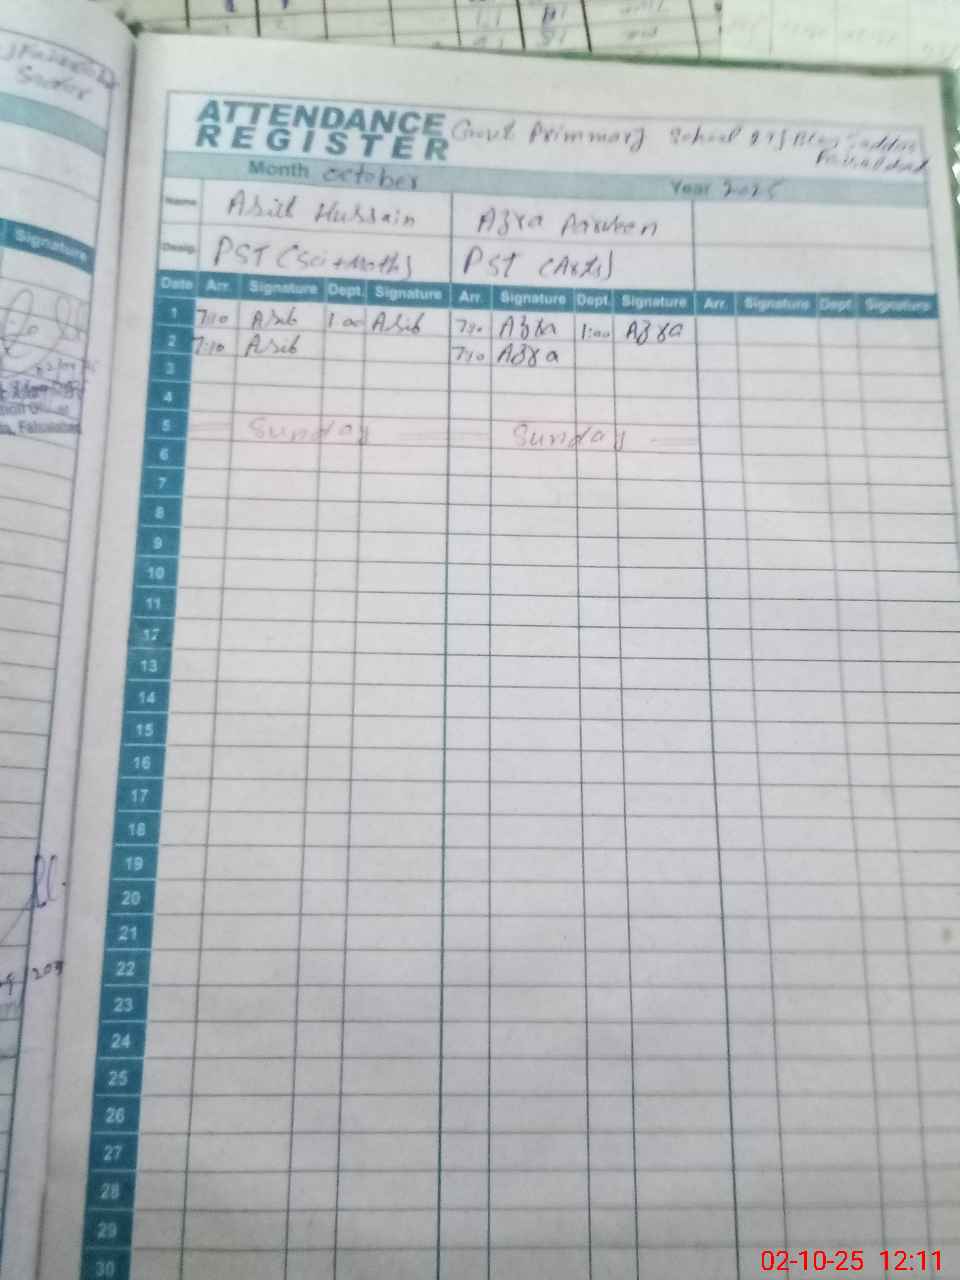 Sadar
ATTENDANCE
REGISTER
Govt Primmary School
Month october Year 2025
Name Asib Hussain Azra Parveen
Desig. PST (Sci+Math) PST (Arts)
Signature
Date Arr. Signature Dept. Signature Arr. Signature Dept. Signature Arr. Signature Dept. Signature
1 7:10 Asib 1:00 Asib 7:10 Azra 1:00 Azra
2 7:10 Asib 7:10 Azra
3
4
5 Sunday Sunday
6
7
8
9
10
11
12
13
14
15
16
17
18
19
20
21
22
23
24
25
26
27
28
29
30
02-10-25 12:11